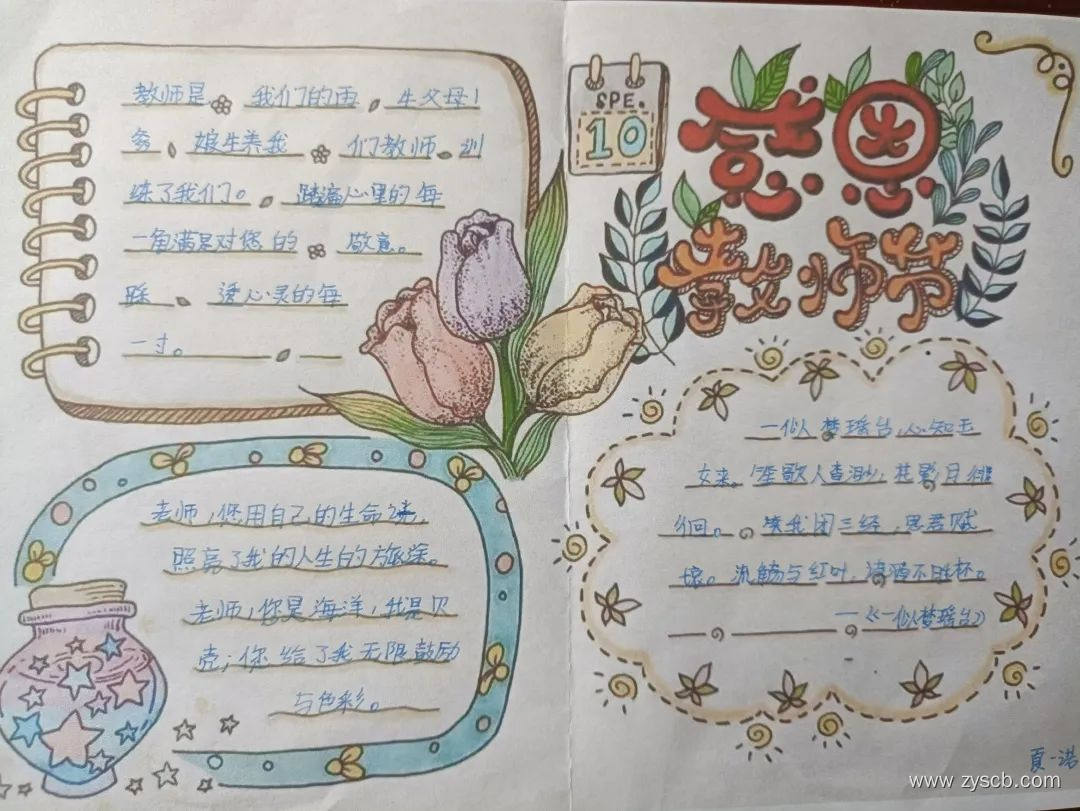 教师是 我们的再 生父母!
爹 娘生养我 们教师 训
练了我们。 踏遍心里的每
一角满是对您 的 敬意。
踩 透心灵的每
一寸。
SPE.
10
感恩
教师节
老师,您用自己的生命之光,
照亮了我的人生的旅途。
老师,您是海洋,我是贝
壳;你给了我无限鼓励
与色彩。
一似梦瑶台,心知玉
女来。笙歌人杳渺,花影月徘
徊。 凭我闭三径,思君赋
壤。流觞与红叶,清酒不胜杯。
—《一似梦瑶台》
夏一诺
www.zyscb.com